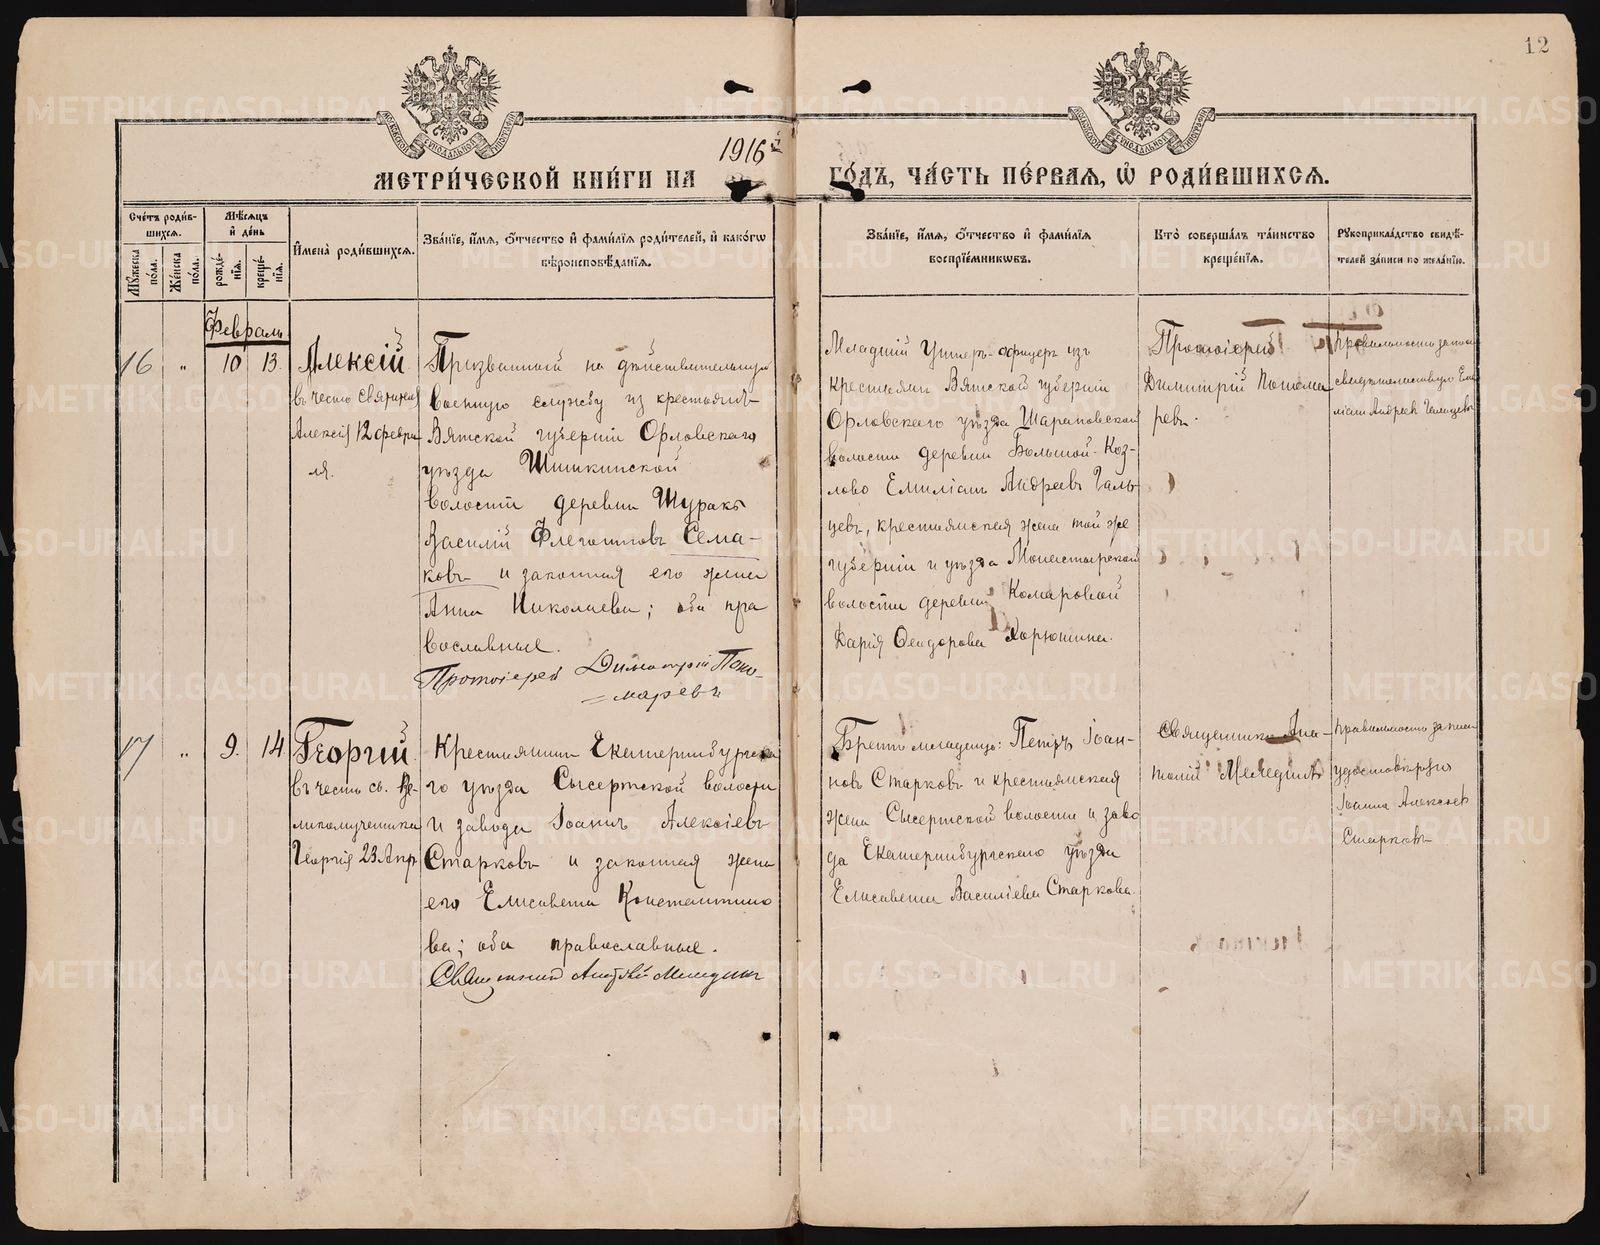 12
МОСКОВСКОЙ СИНОДАЛЬНОЙ ТИПОГРАФІИ
МОСКОВСКОЙ СИНОДАЛЬНОЙ ТИПОГРАФІИ
1916й
МЕТРИ́ЧЕСКОЙ КНИ́ГИ НА ГО́ДЪ, ЧА́СТЬ ПЕ́РВАЯ, Ѡ РОДИ́ВШИХСЯ.
Сче́тъ роди́в-
шихся.
Мꙋжеска по́ла.
Же́нска по́ла.
Мѣ́сяцъ
и҆ де́нь
рожде́-
нїя.
креще́-
нїя.
И҆мена̀ роди́вшихся.
Зва́нїе, и҆́мя, ѻ҆́тчество и҆ фами́лїя роди́телей, и҆ како́гѡ
вѣроисповѣ́данїя.
Зва́нїе, и҆́мя, ѻ҆́тчество и҆ фами́лїя
воспрїе́мникѡвъ.
Кто̀ соверша́лъ та́инство
креще́нїя.
Рꙋкоприкла́дство свидѣ́-
телей за́писи по жела́нїю.
Февраль
16
"
10
13.
Алексій
въ честь Святителя
Алексія 12 февра
ля.
Призванный на дѣйствительную
военную службу из крестьянъ
Вятской губерніи Орловскаго
уѣзда Шишкинской
волости деревни Шуракъ
Василій Флегонтовъ Сема-
ковъ и законная его жена
Анна Николаева; оба пра
вославные.
Протоіерей Димитрій Поно-
=маревъ
Младшій Унтеръ-офицеръ изъ
крестьянъ Вятской губерніи
Орловскаго уѣзда Шарановской
волости деревни Большой-Коз-
лово Емиліанъ Андреевъ Галь-
цевъ, крестьянская жена той же
губерніи и уѣзда Монастырской
волости деревни Комаровской
Дарія Ѳеодорова Хорюшина.
Протоіерей
Димитрій Понома
ревъ.
Правильность записи
свидѣтельствую Еми
ліанъ Андреевъ Гальцевъ
17
"
9.
14
Георгій
въ честь св. Ве-
ликомученика
Георгія 23 Апр
Крестьянинъ Екатеринбургска
го уѣзда Сысертской волости
и завода Іоаннъ Алексіевъ
Старковъ и законная жена
его Елисавета Константино
ва; оба православные.
Священникъ Анатолій Мелединъ
Братъ младенца: Петръ Іоан-
новъ Старковъ и крестьянская
жена Сысертской волости и заво
да Екатеринбургскаго уѣзда
Елисавета Василіева Старкова.
Священникъ Ана-
толій Мелединъ
Правильность записи
удостовѣряю
Іоаннъ Алексіевъ
Старковъ
METRIKI.GASO-URAL.RU